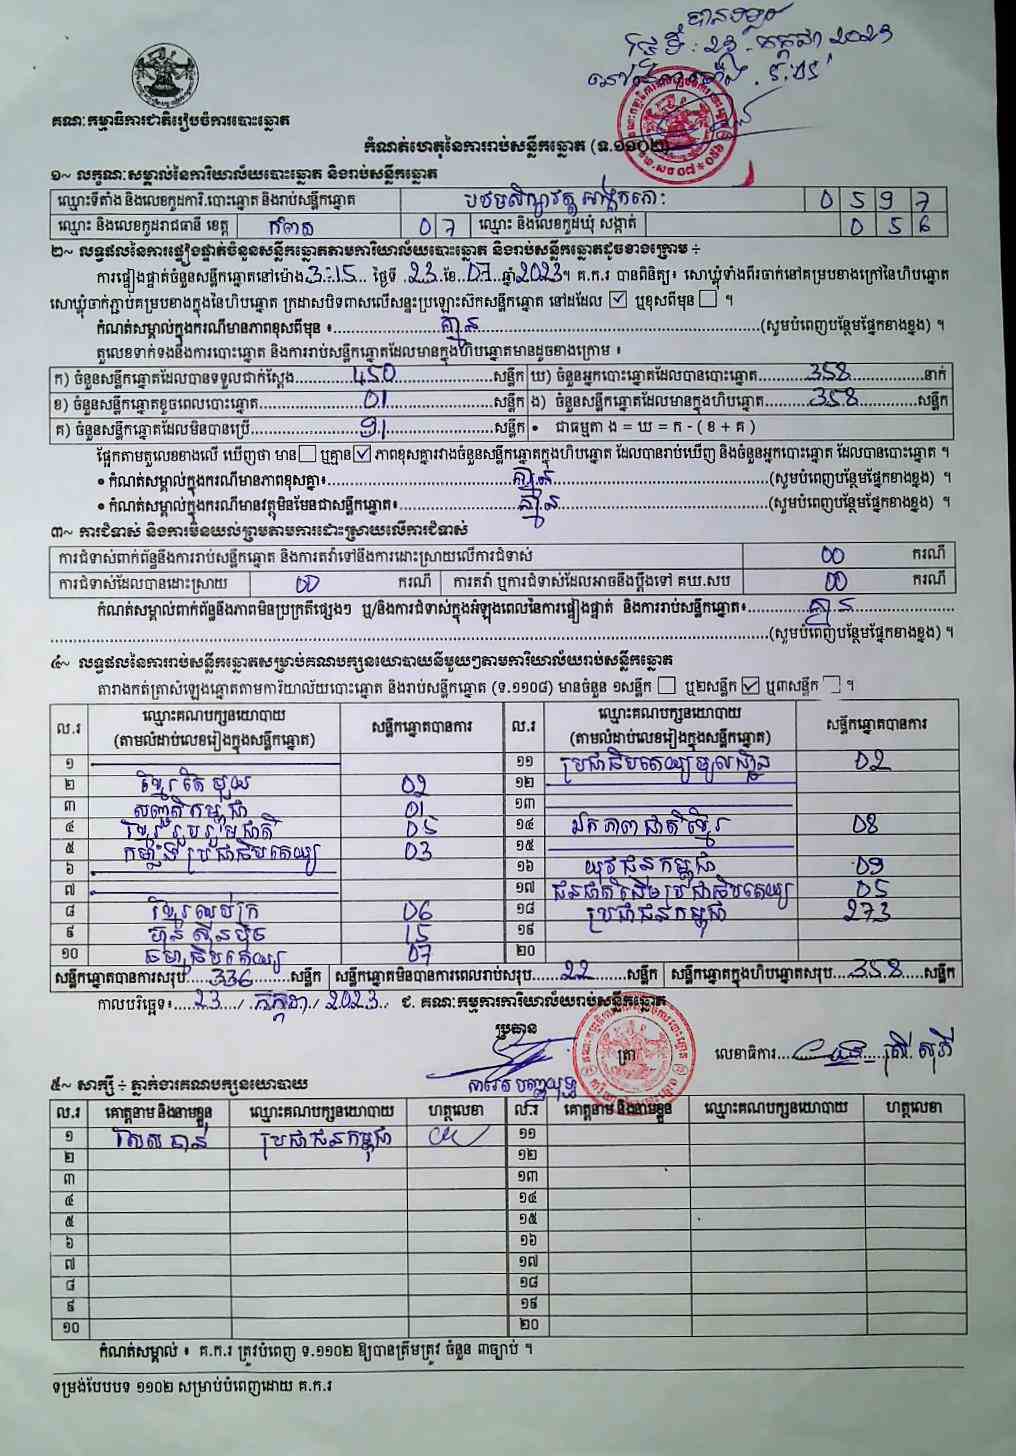 បានទទួល
ថ្ងៃទី : ២៣ . កក្កដា ២០២៣
គណៈកម្មាធិការជាតិរៀបចំការបោះឆ្នោត
កំណត់ហេតុនៃការរាប់សន្លឹកឆ្នោត (ទ.១១០២)
១~ លក្ខណៈសម្គាល់នៃការិយាល័យបោះឆ្នោត និងរាប់សន្លឹកឆ្នោត
ឈ្មោះទីតាំង និងលេខកូដការិ.បោះឆ្នោត និងរាប់សន្លឹកឆ្នោត បឋមសិក្សាវត្ត 0 5 9 7
ឈ្មោះ និងលេខកូដរាជធានី ខេត្ត កំពត 0 7 ឈ្មោះ និងលេខកូដឃុំ សង្កាត់ 0 5 6
២~ លទ្ធផលនៃការផ្ទៀងផ្ទាត់ចំនួនសន្លឹកឆ្នោតតាមការិយាល័យបោះឆ្នោត និងរាប់សន្លឹកឆ្នោតដូចខាងក្រោម ÷
ការផ្ទៀងផ្ទាត់ចំនួនសន្លឹកឆ្នោតនៅម៉ោង 3:15 ថ្ងៃទី 23 ខែ 07 ឆ្នាំ 2023។ គ.ក.រ បានពិនិត្យ៖ សោឃ្លុំទាំងពីរចាក់នៅគម្របខាងក្រៅនៃហិបឆ្នោត
សោឃ្លុំចាក់ភ្ជាប់គម្របខាងក្នុងនៃហិបឆ្នោត ក្រដាសបិទពាសលើសន្ទះប្រឡោះស៊កសន្លឹកឆ្នោត នៅដដែល ☑ ឬខុសពីមុន ☐ ។
កំណត់សម្គាល់ក្នុងករណីមានភាពខុសពីមុន ៖ គ្មាន (សូមបំពេញបន្ថែមផ្នែកខាងខ្នង) ។
តួលេខទាក់ទងនឹងការបោះឆ្នោត និងការរាប់សន្លឹកឆ្នោតដែលមានក្នុងហិបឆ្នោតមានដូចខាងក្រោម ៖
ក) ចំនួនសន្លឹកឆ្នោតដែលបានទទួលជាក់ស្ដែង 450 សន្លឹក ឃ) ចំនួនអ្នកបោះឆ្នោតដែលបានបោះឆ្នោត 358 នាក់
ខ) ចំនួនសន្លឹកឆ្នោតខូចពេលបោះឆ្នោត 01 សន្លឹក ង) ចំនួនសន្លឹកឆ្នោតដែលមានក្នុងហិបឆ្នោត 358 សន្លឹក
គ) ចំនួនសន្លឹកឆ្នោតដែលមិនបានប្រើ 91 សន្លឹក • ជាធម្មតា ង = ឃ = ក - ( ខ + គ )
ផ្អែកតាមតួលេខខាងលើ ឃើញថា មាន ☐ ឬគ្មាន ☑ ភាពខុសគ្នារវាងចំនួនសន្លឹកឆ្នោតក្នុងហិបឆ្នោត ដែលបានរាប់ឃើញ និងចំនួនអ្នកបោះឆ្នោត ដែលបានបោះឆ្នោត ។
• កំណត់សម្គាល់ក្នុងករណីមានភាពខុសគ្នា៖ គ្មាន (សូមបំពេញបន្ថែមផ្នែកខាងខ្នង) ។
• កំណត់សម្គាល់ក្នុងករណីមានវត្ថុមិនមែនជាសន្លឹកឆ្នោត៖ គ្មាន (សូមបំពេញបន្ថែមផ្នែកខាងខ្នង) ។
៣~ ការជំទាស់ និងការមិនយល់ព្រមតាមការដោះស្រាយលើការជំទាស់
ការជំទាស់ពាក់ព័ន្ធនឹងការរាប់សន្លឹកឆ្នោត និងការតវ៉ាទៅនឹងការដោះស្រាយលើការជំទាស់ 00 ករណី
ការជំទាស់ដែលបានដោះស្រាយ 00 ករណី ការតវ៉ា ឬការជំទាស់ដែលអាចនឹងប្ដឹងទៅ គឃ.សប 00 ករណី
កំណត់សម្គាល់ពាក់ព័ន្ធនឹងភាពមិនប្រក្រតីផ្សេងៗ ឬ/និងការជំទាស់ក្នុងអំឡុងពេលនៃការផ្ទៀងផ្ទាត់ និងការរាប់សន្លឹកឆ្នោត៖ គ្មាន
(សូមបំពេញបន្ថែមផ្នែកខាងខ្នង) ។
៤~ លទ្ធផលនៃការរាប់សន្លឹកឆ្នោតសម្រាប់គណបក្សនយោបាយនីមួយៗតាមការិយាល័យរាប់សន្លឹកឆ្នោត
តារាងកត់ត្រាសំឡេងឆ្នោតតាមការិយាល័យបោះឆ្នោត និងរាប់សន្លឹកឆ្នោត (ទ.១១០៨) មានចំនួន ១សន្លឹក ☐ ឬ២សន្លឹក ☑ ឬ៣សន្លឹក ☐ ។
ល.រ ឈ្មោះគណបក្សនយោបាយ (តាមលំដាប់លេខរៀងក្នុងសន្លឹកឆ្នោត) សន្លឹកឆ្នោតបានការ ល.រ ឈ្មោះគណបក្សនយោបាយ (តាមលំដាប់លេខរៀងក្នុងសន្លឹកឆ្នោត) សន្លឹកឆ្នោតបានការ
១ ១១ ប្រជាធិបតេយ្យមូលដ្ឋាន 02
២ ខ្មែរតែមួយ 02 ១២
៣ សញ្ជាតិកម្ពុជា 01 ១៣
៤ ខ្មែររួបរួមជាតិ 05 ១៤ ឯកភាពជាតិខ្មែរ 08
៥ កម្លាំងប្រជាធិបតេយ្យ 03 ១៥
៦ ១៦ យុវជនកម្ពុជា 09
៧ ១៧ ជនជាតិដើមប្រជាធិបតេយ្យ 05
៨ ខ្មែរឈប់ក្រ 06 ១៨ ប្រជាជនកម្ពុជា 273
៩ ហ៊្វុនស៊ិនប៉ិច 15 ១៩
១០ ធម្មាធិបតេយ្យ 07 ២០
សន្លឹកឆ្នោតបានការសរុប 336 សន្លឹក សន្លឹកឆ្នោតមិនបានការពេលរាប់សរុប 22 សន្លឹក សន្លឹកឆ្នោតក្នុងហិបឆ្នោតសរុប 358 សន្លឹក
កាលបរិច្ឆេទ៖ 23 / កក្កដា / 2023 ជ. គណៈកម្មការការិយាល័យរាប់សន្លឹកឆ្នោត
ប្រធាន
ត្រា
លេខាធិការ
៥~ សាក្សី ÷ ភ្នាក់ងារគណបក្សនយោបាយ
ល.រ គោត្តនាម និងនាមខ្លួន ឈ្មោះគណបក្សនយោបាយ ហត្ថលេខា ល.រ គោត្តនាម និងនាមខ្លួន ឈ្មោះគណបក្សនយោបាយ ហត្ថលេខា
១ ប្រជាជនកម្ពុជា ១១
២ ១២
៣ ១៣
៤ ១៤
៥ ១៥
៦ ១៦
៧ ១៧
៨ ១៨
៩ ១៩
១០ ២០
កំណត់សម្គាល់ ៖ គ.ក.រ ត្រូវបំពេញ ទ.១១០២ ឱ្យបានត្រឹមត្រូវ ចំនួន ៣ច្បាប់ ។
ទម្រង់បែបបទ ១១០២ សម្រាប់បំពេញដោយ គ.ក.រ